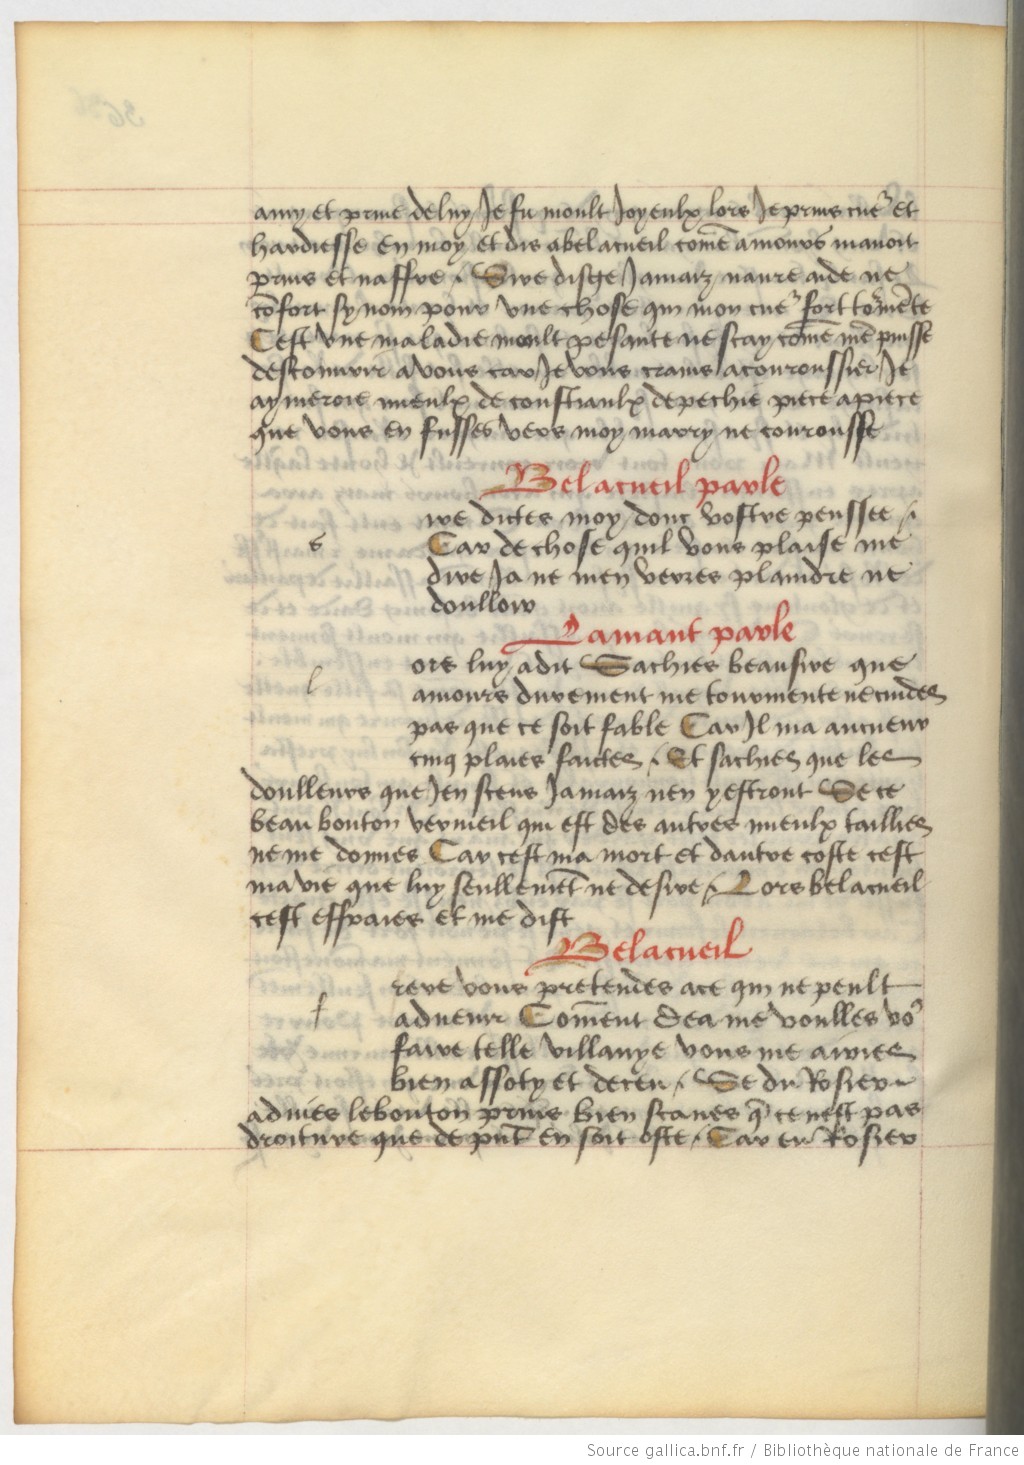 amy et prive de luy Je fu moult Joyeulx lors Je prins cueʳ et
hardiesse en moy et dis a bel acueil com̄e amours mavoit
prins et naffre / Sire disge Jamaiz naure aide ne
cōfort sy nom pour une chose qui mon cueʳ fort tormēte
Cest une maladie moult pesante ne scay com̄e mē puisse
descouvrir a vous car Je vous crains a couroussier Je
aymeroie mieulx de coustiaulx depechie piece a piece
que vous en fusses vers moy marry ne courousse
Bel acueil parle
ire dictes moy donc vostre penssee /
s
Car de chose quil vous plaise me
dire Ja ne men verres plaindre ne
doulloir
Lamant parle
ore luy a dit Sachies beau sire que
l
amours durement me tourmente ne cuides
pas que ce soit fable Car Il ma au cueur
cinq plaies faictes / Et sachies que les
doulleurs que Jen scens Jamaiz nen ystront Se ce
beau bouton vermeil qui est des autres mieulx taillies
ne me donnes Car cest ma mort et dautre coste cest
ma vie que luy seullemēt ne desire / Lors bel acueil
cest effraies et me dist
Bel acueil
rere vous pretendes a ce qui ne peult
f
advenir Com̄ent dea me voulles voˢ
faire telle villanye vous me airies
bien assoty et deceu / Se du Rosier
advies le bouton prins bien scaves q̄ ce nest pas
droiture que de pūt en soit oste / Car en Rosier
Source gallica.bnf.fr / Bibliothèque nationale de France